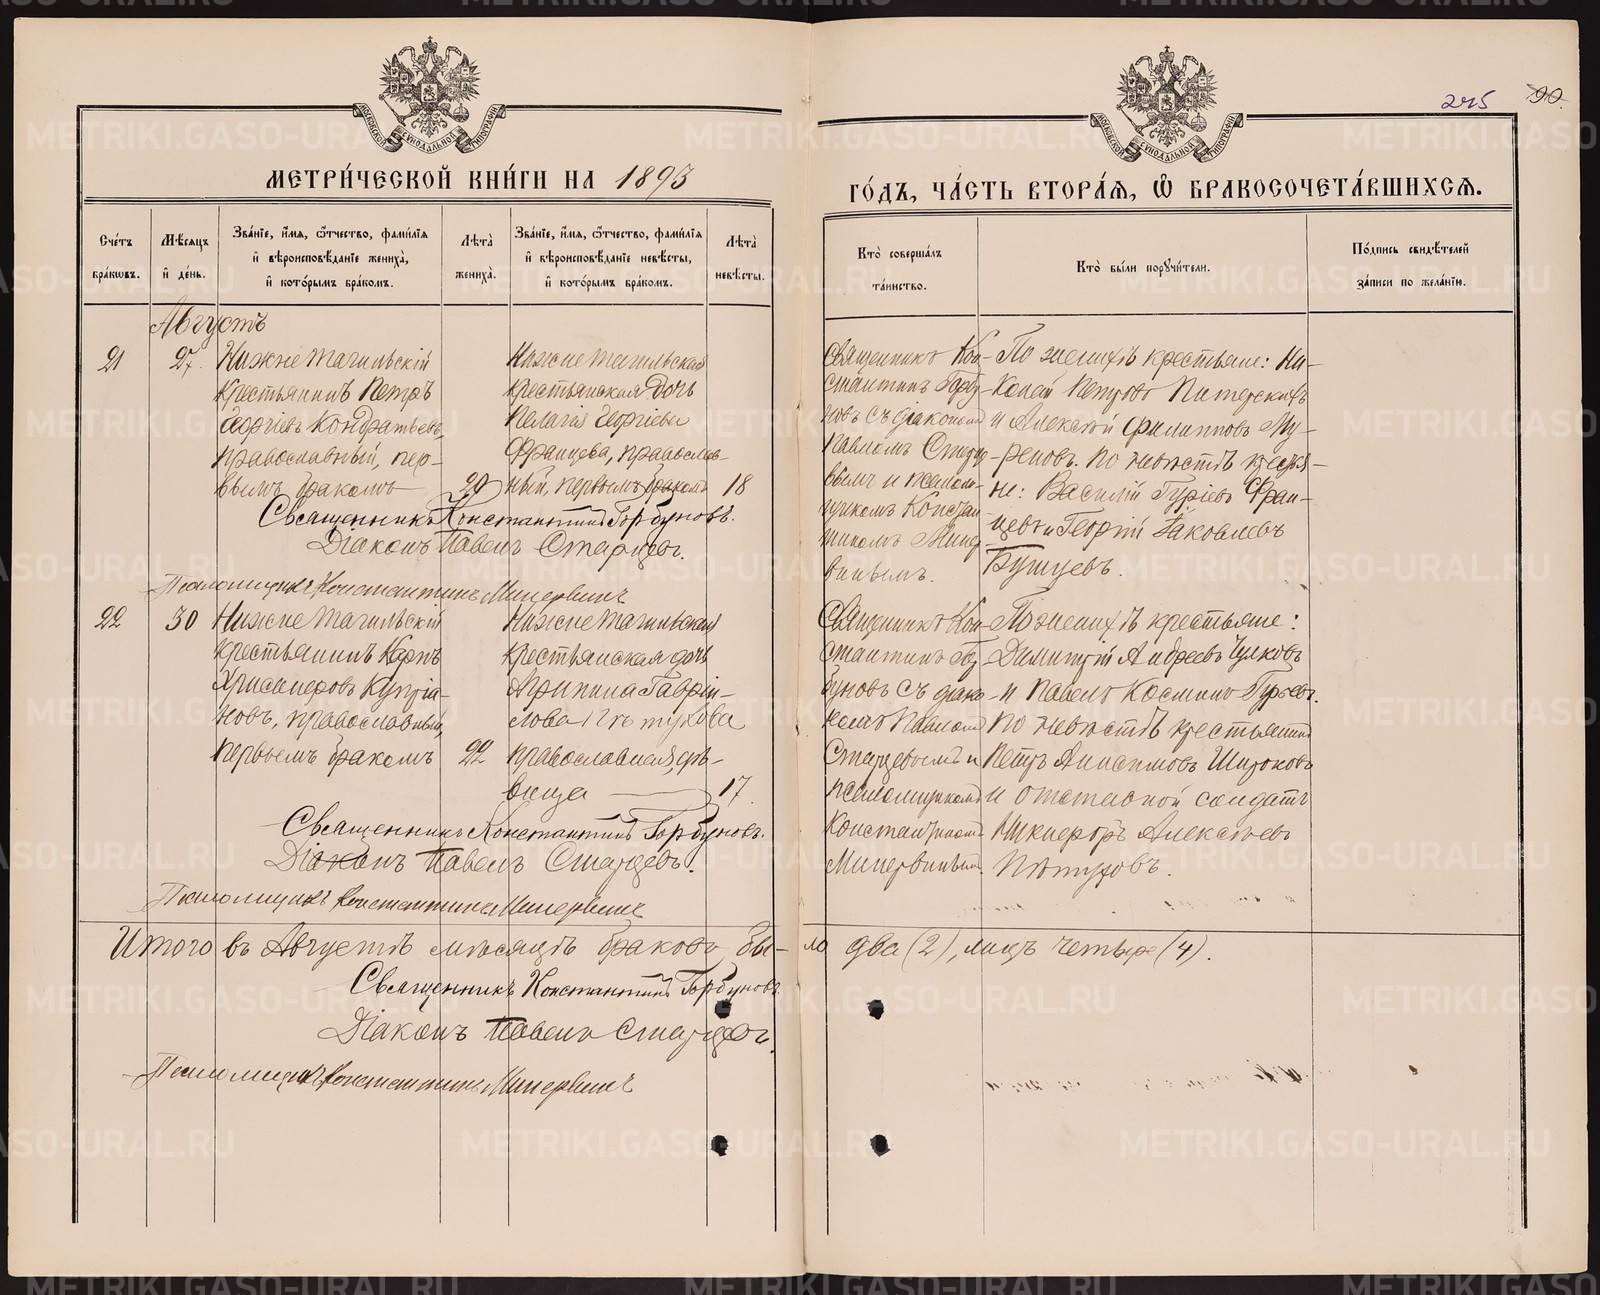 245 90.
МЕТРИ́ЧЕСКОЙ КНИ́ГИ НА 1893
ГО́ДЪ, ЧА́СТЬ ВТОРА́Я, Ѡ БРАКОСОЧЕТА́ВШИХСЯ.
Сче́тъ бра́кѡвъ.
Мѣ́сяцъ и҆ де́нь.
Зва́нїе, и҆́мя, ѻ҆́тчество, фами́лїя
и҆ вѣроисповѣ́данїе жениха̀,
и҆ кото́рымъ бра́комъ.
Лѣ́та жениха̀.
Зва́нїе, и҆́мя, ѻ҆́тчество, фами́лїя
и҆ вѣроисповѣ́данїе невѣ́сты,
и҆ кото́рымъ бра́комъ.
Лѣ́та невѣ́сты.
Кто̀ соверша́лъ
та́инство.
Кто̀ бы́ли порꙋчи́тели.
По́дпись свидѣ́телей
за́писи по жела́нїю.
Августъ
21
27.
Нижне Тагильскій
крестьянинъ Петръ
Георгіевъ Кондратьевъ,
православный, пер-
вымъ бракомъ
20
Нижне Тагильская
крестьянская дочь
Пелагія Георгіева
Францева, православ-
ный, первымъ бракомъ
18
Священникъ Кон-
стантинъ Горбу-
новъ съ діакономъ
Павломъ Старце-
вымъ и псалом-
щикомъ Констан-
тиномъ Минер-
винымъ.
По женихѣ крестьяне: Ни-
колай Петровъ Питерскихъ
и Алексѣй Филипповъ Му-
реновъ. По невѣстѣ крестья-
не: Василій Гуріевъ Фран-
цевъ и Георгій Яковлевъ
Бушуевъ.
Священникъ Константинъ Горбуновъ.
Діаконъ Павелъ Старцевъ.
Псаломщикъ Константинъ Минервинъ
22
30
Нижне Тагильскій
крестьянинъ Карпъ
Хрисанфовъ Купріа-
новъ, православный,
первымъ бракомъ
22
Нижне Тагильская
крестьянская дочь
Агрипина Гаврі-
лова
православная, дѣ-
вица
17
Священникъ Кон-
стантинъ Гор-
буновъ съ діако-
номъ Павломъ
Старцевымъ и
псаломщикомъ
Константиномъ
Минервинымъ.
По женихѣ крестьяне:
Димитрій Андреевъ Чулковъ
и Павелъ Косминъ Гурьевъ.
По невѣстѣ крестьянинъ
Петръ Анисимовъ Широковъ
и отставной солдатъ
Никифоръ Алексѣевъ
Пѣтуховъ.
Священникъ Константинъ Горбуновъ.
Діаконъ Павелъ Старцевъ.
Псаломщикъ Константинъ Минервинъ
Итого въ Августѣ мѣсяцѣ браковъ бы-ло два (2), лицъ четыре (4).
Священникъ Константинъ Горбуновъ
Діаконъ Павелъ Старцевъ.
Псаломщикъ Константинъ Минервинъ
METRIKI.GASO-URAL.RU